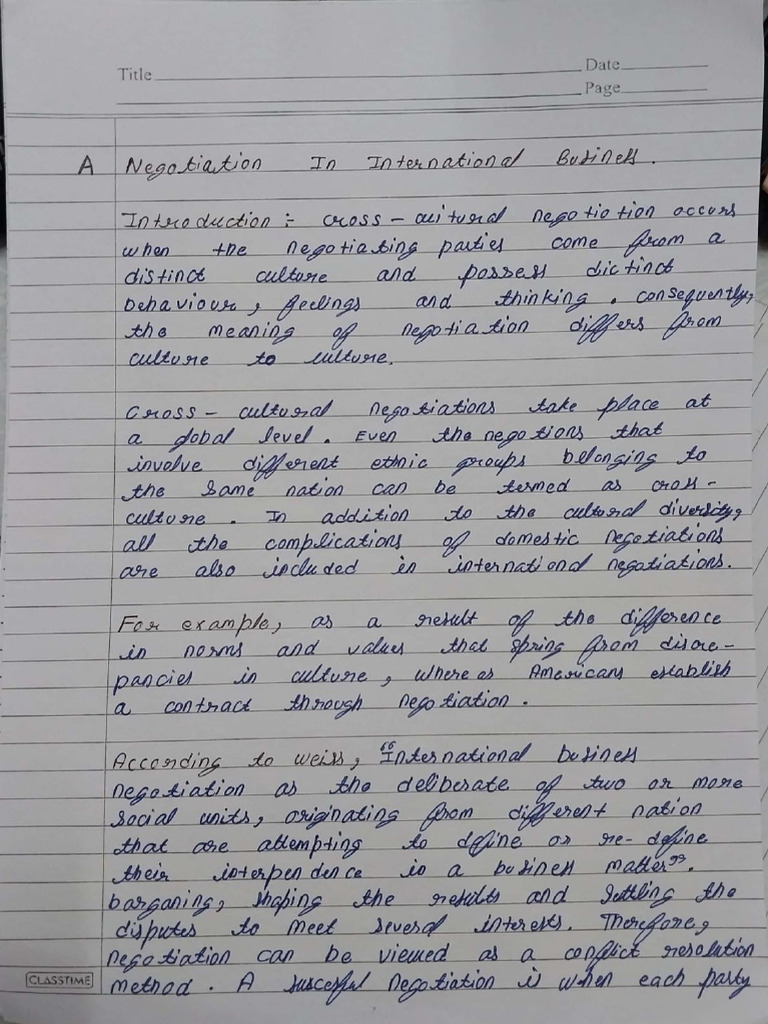 Title
Date
Page
A Negotiation In International Business.
Introduction :- cross-cultural negotiotion occurs
when the negotiating parties come from a
distinct culture and possess dictinct
behaviour, feelings and thinking. consequently,
the meaning of negotiation differs from
culture to culture.
Cross-cultural negotiations take place at
a global level. Even the negotions that
involve different ethnic groups belonging to
the same nation can be termed as cross-
culture. In addition to the cultural diversity,
all the complications of domestic negotiations
are also included in international negotiations.
For example, as a result of the difference
in norms and values that spring from discre-
pancies in culture, where as Americans establish
a contract through negotiation.
According to weiss, "International business
negotiation as the deliberate of two or more
social units, originating from different nation
that are attempting to define or re-define
their interpendence in a business matter".
barganing, shaping the results and settling the
disputes to meet several interests. Therefore,
negotiation can be viewed as a conflict resolution
method. A succesful negotiation is when each party
CLASSTIME